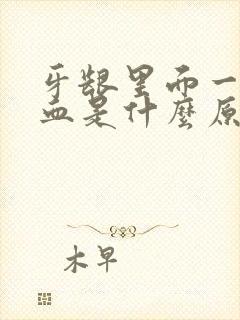 牙龈里而一
血是什麼原
木早